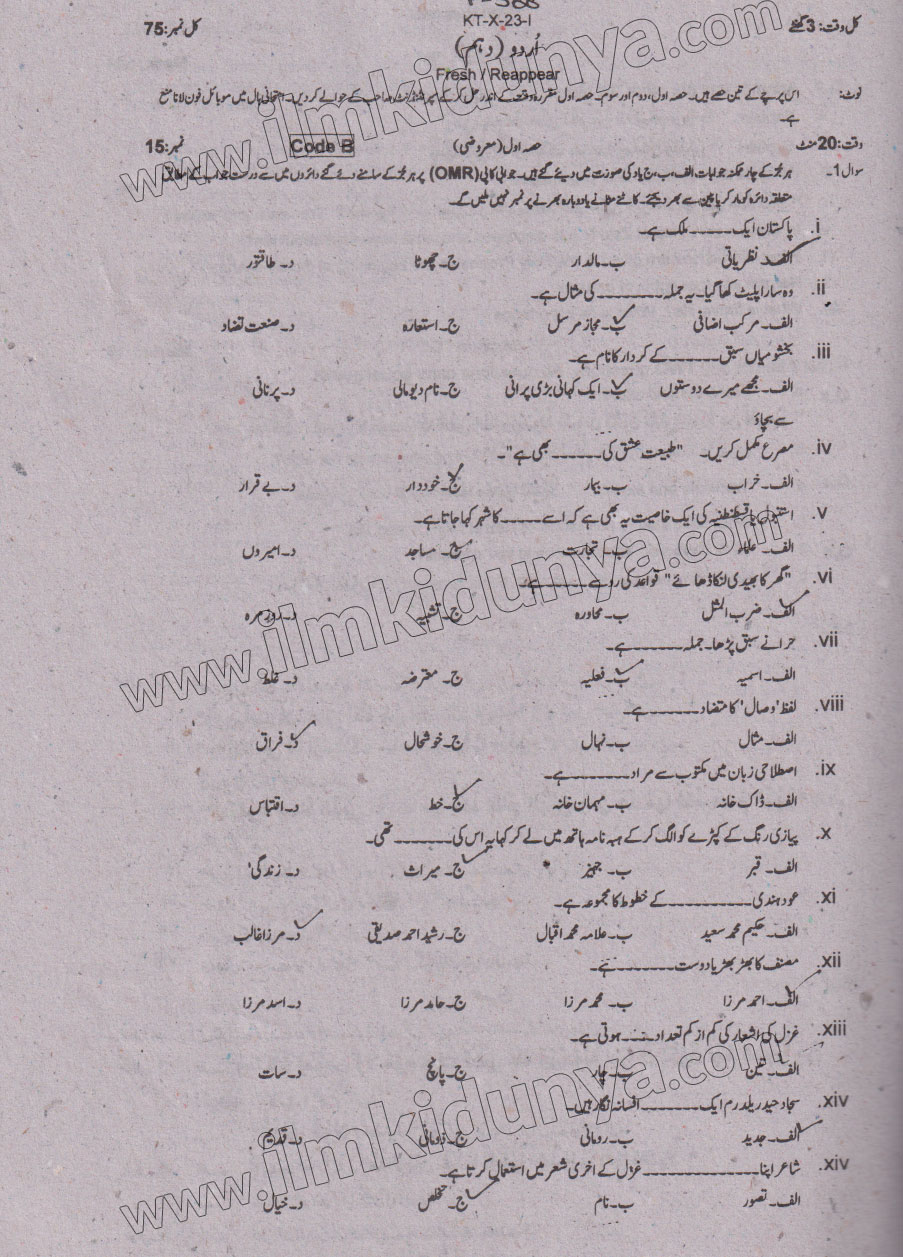 KT-X-23-I
کل وقت: 3 گھنٹے
کل نمبر: 75
اُردو (دہم)
Fresh / Reappear
نوٹ: اس پرچے کے تین حصے ہیں۔ حصہ اول، دوم اور سوم۔ حصہ اول مقررہ وقت کے اندر حل کر کے سپرنٹنڈنٹ صاحب کے حوالے کر دیں۔ امتحانی ہال میں موبائل فون لانا منع
ہے۔
وقت: 20 منٹ حصہ اول (معروضی) Code B نمبر: 15
سوال 1۔ ہر جُز کے چار ممکنہ جوابات الف، ب، ج یا د کی صورت میں دیئے گئے ہیں۔ جوابی کاپی (OMR) پر ہر جُز کے سامنے دئے گئے دائروں میں سے درست جواب کے مطابق
متعلقہ دائرہ کو مارکر یا پین سے بھر دیجئے۔ کاٹنے مٹانے یا دوبارہ بھرنے پر نمبر نہیں ملیں گے۔
i. پاکستان ایک ــــــــ ملک ہے۔
الف۔ نظریاتی ب۔ مالدار ج۔ چھوٹا د۔ طاقتور
ii. وہ سارا پلیٹ کھا گیا۔ یہ جملہ ــــــــ کی مثال ہے۔
الف۔ مرکب اضافی ب۔ مجاز مرسل ج۔ استعارہ د۔ صنعت تضاد
iii. بخشو میاں سبق ــــــــ کے کردار کا نام ہے۔
الف۔ مجھے میرے دوستوں ب۔ ایک کہانی بڑی پرانی ج۔ نام دیو مالی د۔ پرنانی
سے بچاؤ
iv. مصرع مکمل کریں۔ "طبیعت عشق کی ــــــــ بھی ہے"۔
الف۔ خراب ب۔ بیمار ج۔ خوددار د۔ بے قرار
v. استنبول یا قسطنطنیہ کی ایک خاصیت یہ بھی ہے کہ اسے ــــــــ کا شہر کہا جاتا ہے۔
الف۔ علماء ب۔ تجارت ج۔ مساجد د۔ امیروں
vi. "گھر کا بھیدی لنکا ڈھائے" قواعد کی رو سے ــــــــ ہے۔
الف۔ ضرب المثل ب۔ محاورہ ج۔ تشبیہ د۔ روزمرہ
vii. حرا نے سبق پڑھا۔ جملہ ــــــــ ہے۔
الف۔ اسمیہ ب۔ فعلیہ ج۔ معترضہ د۔ غلط
viii. لفظ 'وصال' کا متضاد ــــــــ ہے۔
الف۔ مثال ب۔ نہال ج۔ خوشحال د۔ فراق
ix. اصطلاحی زبان میں مکتوب سے مراد ــــــــ ہے۔
الف۔ ڈاک خانہ ب۔ مہمان خانہ ج۔ خط د۔ اقتباس
x. پیازی رنگ کے کپڑے کو الگ کر کے ہبہ نامہ ہاتھ میں لے کر کہا یہ اس کی ــــــــ تھی۔
الف۔ قبر ب۔ جہیز ج۔ میراث د۔ زندگی'
xi. عود ہندی ــــــــ کے خطوط کا مجموعہ ہے۔
الف۔ حکیم محمد سعید ب۔ علامہ محمد اقبال ج۔ رشید احمد صدیقی د۔ مرزا غالب
xii. مصنف کا بھڑ بھڑیا دوست ــــــــ ہے۔
الف۔ احمد مرزا ب۔ محمد مرزا ج۔ حامد مرزا د۔ اسد مرزا
xiii. غزل کی اشعار کی کم از کم تعداد ــــــــ ہوتی ہے۔
الف۔ تین ب۔ چار ج۔ پانچ د۔ سات
xiv. سجاد حیدر یلدرم ایک ــــــــ افسانہ نگار ہیں۔
الف۔ جدید ب۔ رومانی ج۔ د۔ قدیم
xiv. شاعر اپنا ــــــــ غزل کے اخری شعر میں استعمال کرتا ہے۔
الف۔ تصور ب۔ نام ج۔ تخلص د۔ خیال
www.ilmkidunya.com
www.ilmkidunya.com
www.ilmkidunya.com